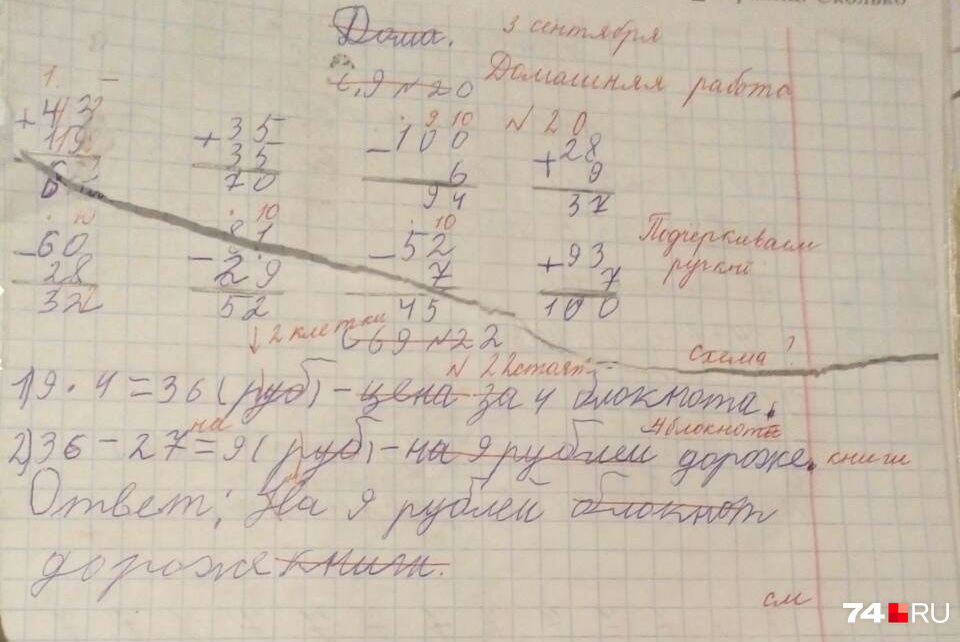 Дома. 3 сентября
с, 9 №20 Домашняя работа
1.
9 10 №20
+43 +35 -100 +28
119 35 6 9
6 70 94 37
10 10 10
-60 -81 -52 +93
28 29 7 7
32 52 45 100
Подчеркиваем
ручкой
↓ 2 клетки с 69 №22 схема?
№ 22 стоят
1) 9 · 4 = 36 (руб) - цена за 4 блокнота.
на 4 блокнота
2) 36 - 27 = 9 (руб) - на 9 рублей дороже. книги
Ответ: На 9 рублей блокнот
дороже книги.
см
74.RU